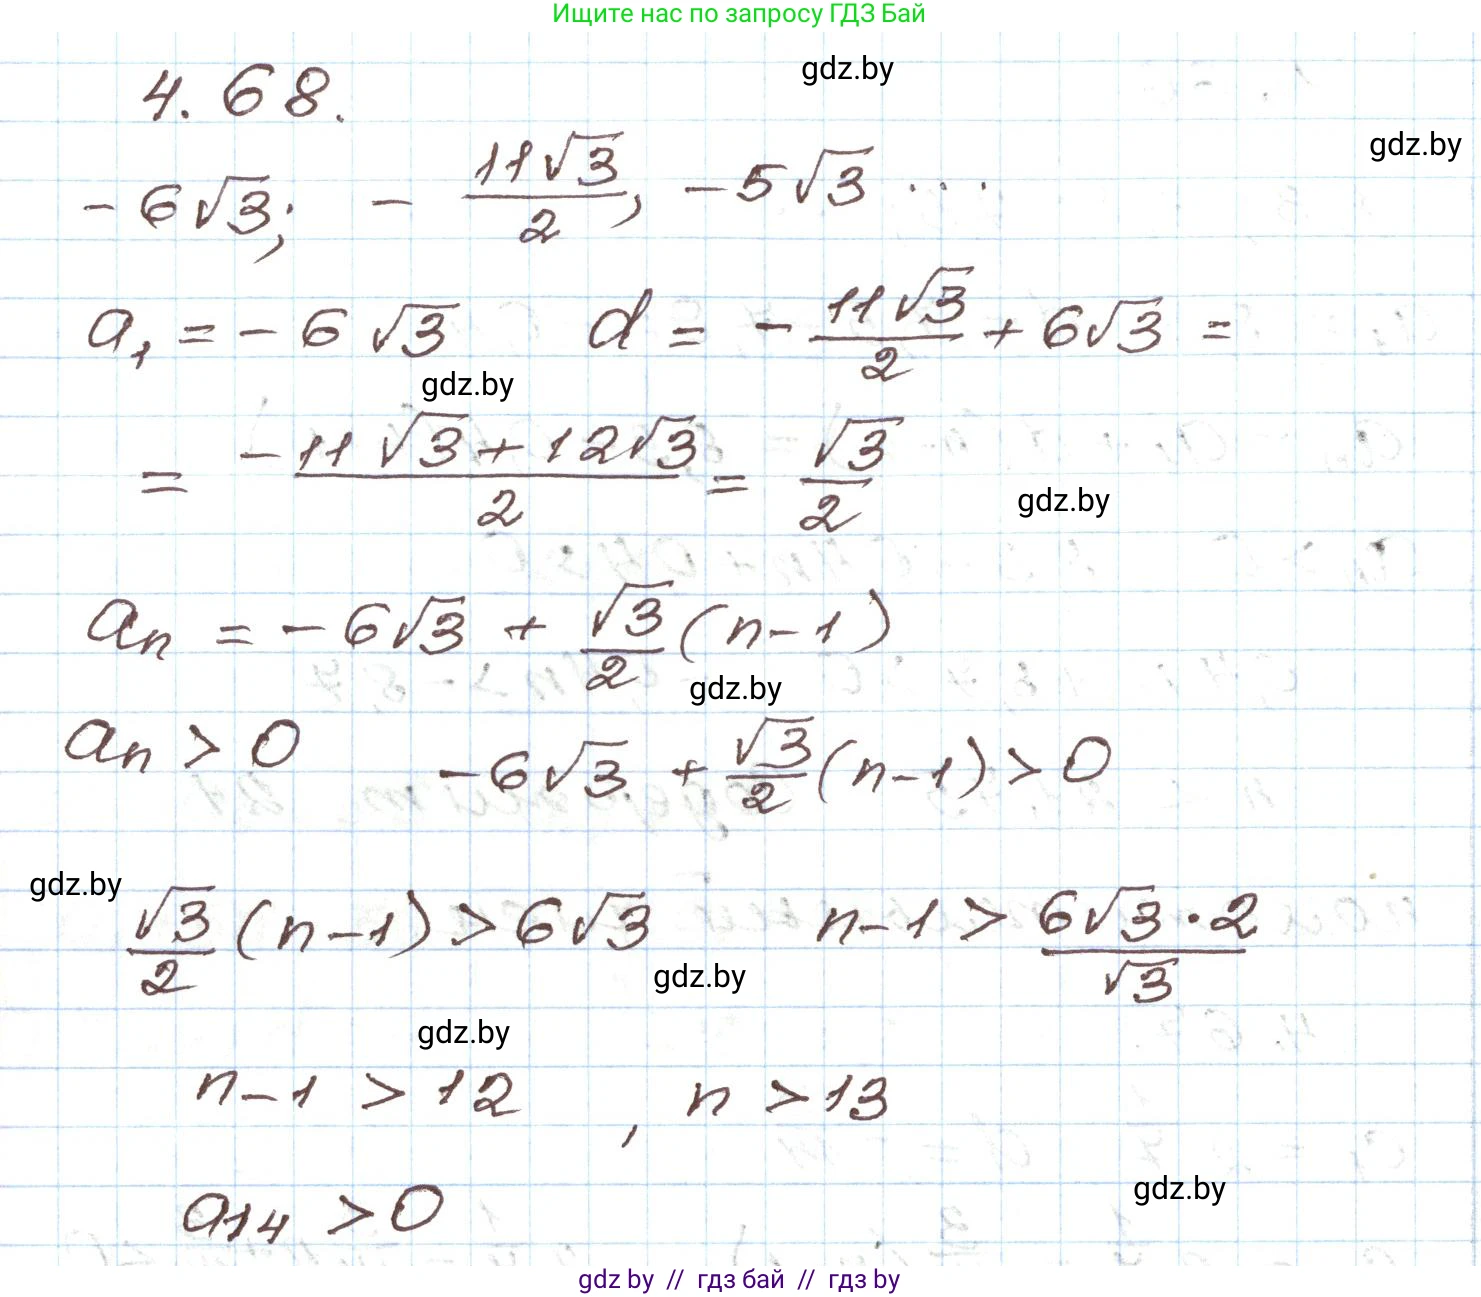 Ищите нас по запросу ГДЗ Бай
4.68.
gdz.by
gdz.by
-6√3; - 11√3/2, -5√3 ...
a₁ = -6√3 d = - 11√3/2 + 6√3 =
gdz.by
= -11√3 + 12√3/2 = √3/2
gdz.by
aₙ = -6√3 + √3/2 (n-1)
gdz.by
aₙ > 0 -6√3 + √3/2 (n-1) > 0
gdz.by
√3/2 (n-1) > 6√3 n-1 > 6√3·2/√3
gdz.by
gdz.by
n-1 > 12, n > 13
gdz.by
a₁₄ > 0
gdz by // гдз бай // гдз by